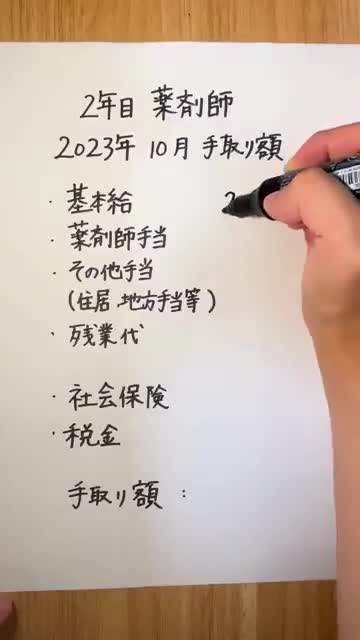 2年目 薬剤師
2023年 10月 手取り額
・基本給 2
・薬剤師手当
・その他手当
(住居、地方手当等)
・残業代
・社会保険
・税金
手取り額 :